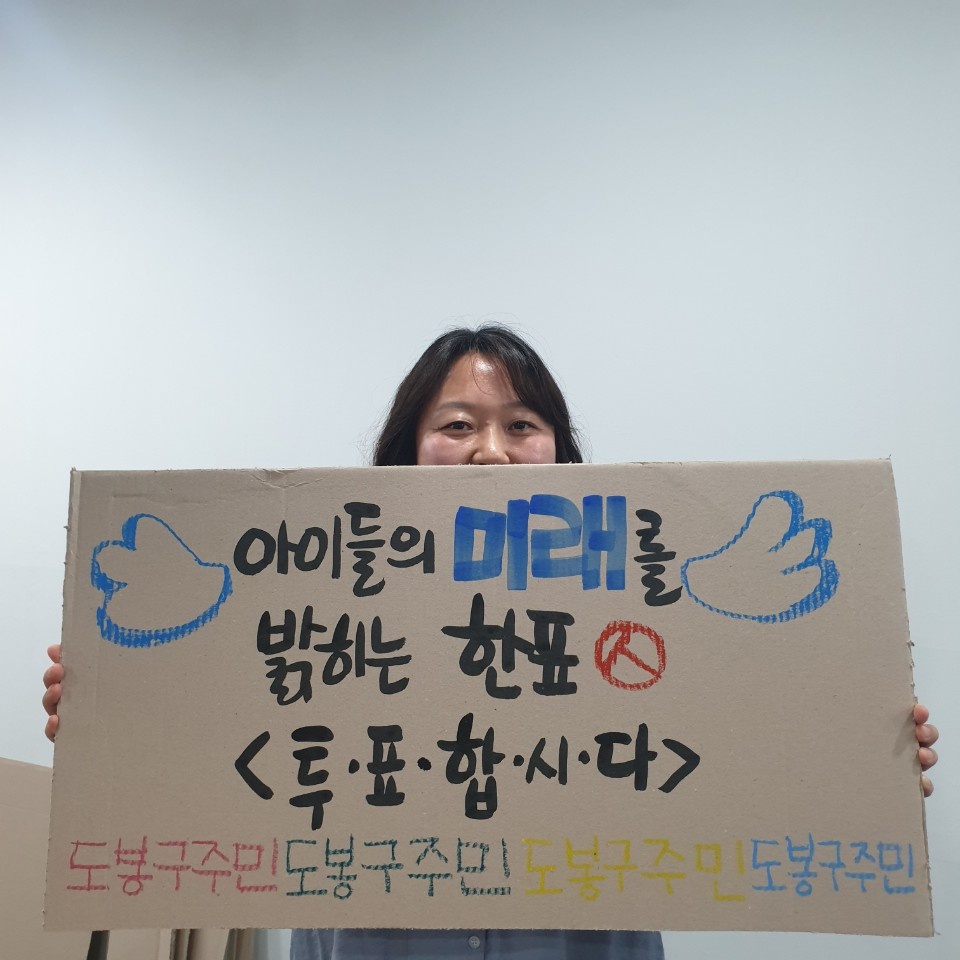 아이들의 미래를
밝히는 한표
<투·표·합·시·다>
도봉구주민 도봉구주민 도봉구주민 도봉구주민